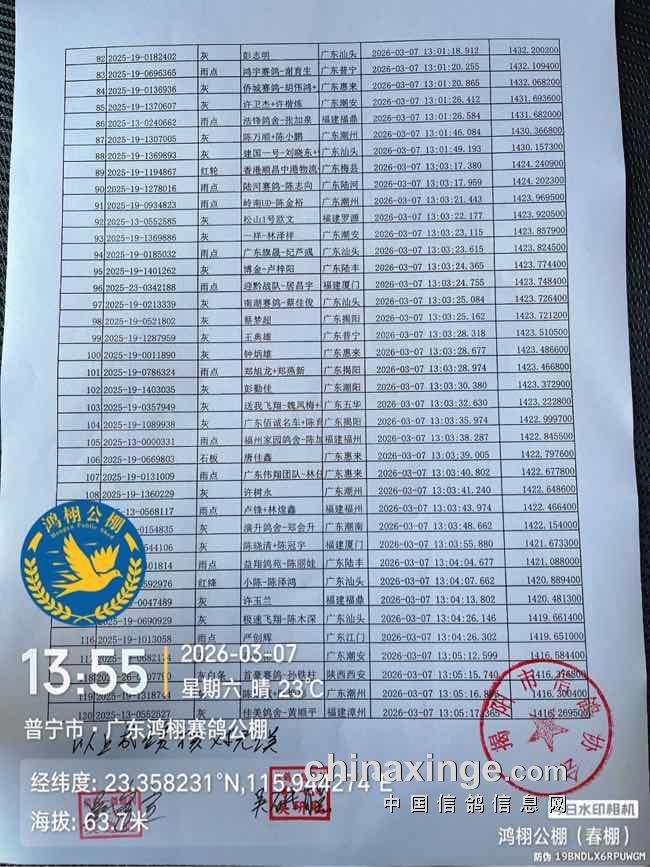 82 2025-19-0182402 灰 彭志明 广东汕头 2026-03-07 13:01:18.912 1432.200200
83 2025-19-0696365 雨点 鸿宇赛鸽-谢育生 广东普宁 2026-03-07 13:01:20.255 1432.109400
84 2025-19-0136936 灰 侨城赛鸽-胡伟鸿+ 广东惠来 2026-03-07 13:01:20.865 1432.068200
85 2025-19-1370607 灰 许卫杰+许楷炼 广东潮安 2026-03-07 13:01:26.412 1431.693600
86 2025-13-0240662 雨点 浩锋鸽舍-张加泉 福建福鼎 2026-03-07 13:01:26.584 1431.682000
87 2025-19-1307005 灰 陈万顺+陈小鹏 广东潮州 2026-03-07 13:01:46.084 1430.366800
88 2025-19-1369893 灰 建国一号-刘晓东+ 广东汕头 2026-03-07 13:01:49.193 1430.157300
89 2025-19-1194867 红轮 香港顺昌中港物流- 广东梅县 2026-03-07 13:03:17.380 1424.240900
90 2025-19-1278016 雨点 陆河赛鸽-陈志向 广东陆河 2026-03-07 13:03:17.959 1424.202300
91 2025-19-0934823 雨点 岭南UD-陈金裕 广东潮州 2026-03-07 13:03:21.443 1423.969500
92 2025-13-0552585 灰 松山1号欧文 福建罗源 2026-03-07 13:03:22.177 1423.920500
93 2025-19-1369886 灰 一祥-林泽祥 广东潮安 2026-03-07 13:03:23.115 1423.857900
94 2025-19-0185032 雨点 广东旗晟-纪芦彧 广东汕头 2026-03-07 13:03:23.615 1423.824500
95 2025-19-1401262 灰 博金-卢梓阳 广东陆丰 2026-03-07 13:03:24.365 1423.774400
96 2025-23-0342188 雨点 迎黔战队-居昌宇 福建厦门 2026-03-07 13:03:24.755 1423.748400
97 2025-19-0213339 灰 南潮赛鸽-蔡佳俊 广东汕头 2026-03-07 13:03:25.084 1423.726400
98 2025-19-0521802 灰 蔡梦超 广东揭阳 2026-03-07 13:03:25.162 1423.721200
99 2025-19-1287959 灰 王典雄 广东普宁 2026-03-07 13:03:28.318 1423.510500
100 2025-19-0011890 灰 钟炳雄 广东惠来 2026-03-07 13:03:28.677 1423.486600
101 2025-19-0786324 雨点 郑旭龙+郑燕新 广东揭阳 2026-03-07 13:03:28.974 1423.466800
102 2025-19-1403035 灰 彭勤佳 广东潮阳 2026-03-07 13:03:30.380 1423.372900
103 2025-19-0357949 灰 送我飞翔-魏凤梅+ 广东五华 2026-03-07 13:03:32.630 1423.222800
104 2025-19-1089938 灰 广东佰诚名车+陈 广东揭阳 2026-03-07 13:03:35.974 1422.999700
105 2025-13-0000331 雨点 福州家园鸽舍-陈加 福建福州 2026-03-07 13:03:38.287 1422.845500
106 2025-19-0669803 石板 唐佳鑫 广东惠来 2026-03-07 13:03:39.005 1422.797600
107 2025-19-0131009 雨点 广东伟翔团队-林 广东惠来 2026-03-07 13:03:40.802 1422.677800
108 2025-19-1360229 灰 许树永 广东潮州 2026-03-07 13:03:41.240 1422.648600
-0568117 雨点 卢锋+林煌鑫 福建福州 2026-03-07 13:03:43.974 1422.466400
0154835 灰 演升鸽舍-郑会升 广东潮南 2026-03-07 13:03:48.662 1422.154000
544106 灰 陈晓清+陈冠宇 福建厦门 2026-03-07 13:03:55.880 1421.673300
01814 雨点 益翔鸽苑-陈丽娃 广东陆丰 2026-03-07 13:04:04.677 1421.088000
592976 红绛 小陈-陈泽鸿 广东汕头 2026-03-07 13:04:07.662 1420.889400
-0047489 灰 许玉兰 福建福鼎 2026-03-07 13:04:13.802 1420.481300
-0690929 灰 极速飞翔-陈木深 广东汕头 2026-03-07 13:04:26.146 1419.661400
116 2025-19-1013058 雨点 严创辉 广东江门 2026-03-07 13:04:26.302 1419.651000
广东潮安 2026-03-07 13:05:12.599 1416.584400
灰白条 首豪赛鸽-孙铁柱 陕西西安 2026-03-07 13:05:15.740 1416.376800
广东潮州 2026-03-07 13:05:16. 1416.300400
120 2025-13-0552527 灰 佳美鸽舍-黄顺平 福建漳州 2026-03-07 13:05:16. 1416.269500
鸿栩公棚
13:55
2026-03-07
星期六 晴 23℃
普宁市·广东鸿栩赛鸽公棚
以上成绩核对无误
经纬度: 23.358231°N,115.944274°E
海拔: 63.7米
揭阳市信鸽协会
chinaxinge.com
中国信鸽信息网
今日水印相机
鸿栩公棚（春棚）
防伪 19BNDLX6RPUWGM